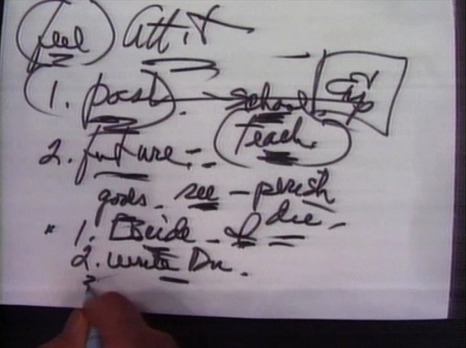 feel Attit
1. past - school.
2. future - Teach
goals - see - perish
* 1. Decide - & die -
2. write Dn.
3